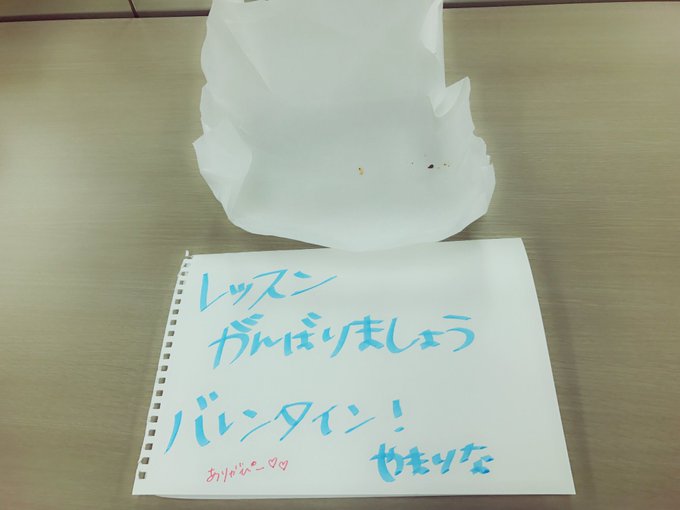 レッスン
がんばりましょう
バレンタイン！
ありがぴー♡♡
やまりな